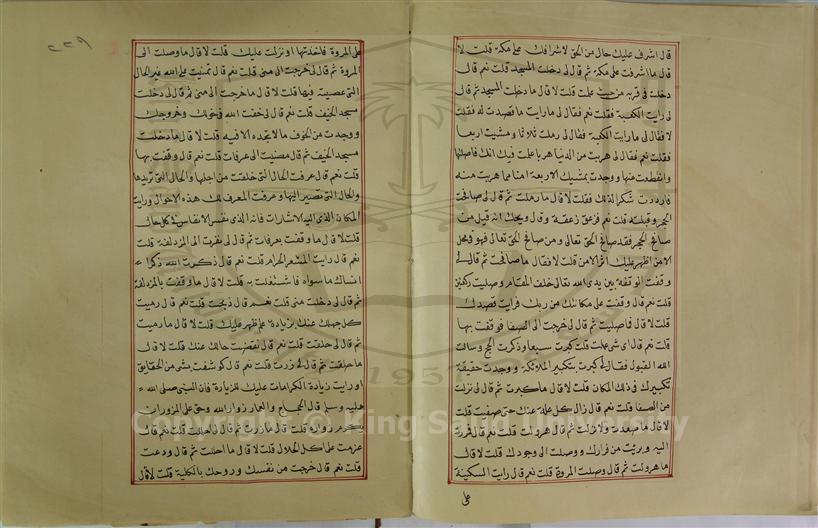 قال اشرف عليك حال من الحق لاشرافك على مكة قلت لا
قال ما اشرفت على مكة ثم قال لى دخلت المسجد قلت نعم قال
دخلت فى قربه من حيث علمت قلت لا قال ما دخلت المسجد ثم قال
لى رايت الكعبة فقلت نعم فقال لى مارايت ما قصدت له فقلت
لا فقال لى ما رايت الكعبة فقال لى رملت ثلاثا ومشيت اربعا
فقلت نعم فقال لى هربت من الدنيا هربا علمت فيك انك فاصلتها
وانقطعت منها ووجدت بمشيك الاربعة امنا مما هربت منه
فازددت شكرا لذلك فقلت لا قال ما رملت ثم قال لى صافحت
الحجر وقبلته قلت نعم فزعق زعقة وقال ويحك انه قيل من
صافح الحجر فقد صافح الحق تعالى ومن صافح الحق تعالى فهو فى محل
الامن اظهر عليك اثر الامن قلت لا فقال ما صافحت ثم قال لى
وقفت الوقفة بين يدى الله تعالى خلف المقام وصليت ركعتين
قلت نعم قال وقفت على مكانتك من ربك فرايت قصدك
قلت لا قال فما صليت ثم قال لى خرجت الى الصفا فوقفت بها
قلت نعم قال اى شئ علمت قلت كبرت سبعا وذكرت الحج وسالت
الله القبول فقال لى كبرت بتكبير الملائكة ووجدت حقيقة
تكبيرك فى ذلك المكان قلت لا قال ما كبرت ثم قال لى نزلت
من الصفا قلت نعم قال زال كل علة عنك حتى صفيت قلت
لا قال ما صعدت ولا نزلت ثم قال هرولت قلت نعم قال ففررت
اليه وبريت من فرارك ووصلت الى وجودك قلت لا قال
ما هرولت ثم قال وصلت المروة قلت نعم قال رايت السكينة
على
٢٢٩
على المروة فاخذتها او نزلت عليك قلت لا قال ما وصلت الى
المروة ثم قال لى خرجت الى منى قلت نعم قال تمنيت على الله غير الحال
التى عصيته فيها قلت لا قال ما خرجت الى منى ثم قال لى دخلت
مسجد الخيف قلت نعم قال لى خفت الله فى دخولك وخروجك
ووجدت من الخوف مالا تجده الا فيه قلت لا قال ما دخلت
مسجد الخيف ثم قال مضيت الى عرفات قلت نعم قال وقفت بها
قلت نعم قال عرفت الحال التى خلقت من اجلها والحال التى تريدها
والحال التى تصير اليها وعرفت المعرف لك هذه الاحوال ورايت
المكان الذى اليه الاشارات فانه الذى نفس الانفاس فى كل حال
قلت لا قال ما وقفت بعرفات ثم قال لى نفرت الى المزدلفة قلت
نعم قال رايت المشعر الحرام قلت نعم قال ذكرت الله ذكرا
انساك ما سواه فاشتغلت به قلت لا قال ما وقفت بالمزدلفة
ثم قال لى دخلت منى قلت نعم قال ذبحت قلت نعم قال رميت
كل جهلك عنك بزيادة علم ظهر عليك قلت لا قال ما رميت
ثم قال لى حلقت قلت نعم قال نقصت حالك عنك قلت لا قال
ما حلقت ثم قال لى زرت قلت نعم قال كوشفت بشئ من الحقايق
او رايت زيادة الكرامات عليك للزيارة فان النبى صلى الله
عليه وسلم قال الحجاج والعمار زوار الله وحق على المزوران
يكرم زواره قلت لا قال ما زرت ثم قال لى احللت قلت نعم قال
عزمت على اكل الحلال قلت لا قال ما احللت ثم قال ودعت
قلت نعم قال خرجت من نفسك وروحك بالكلية قلت لا قال
1957
Copyright © King Saud University